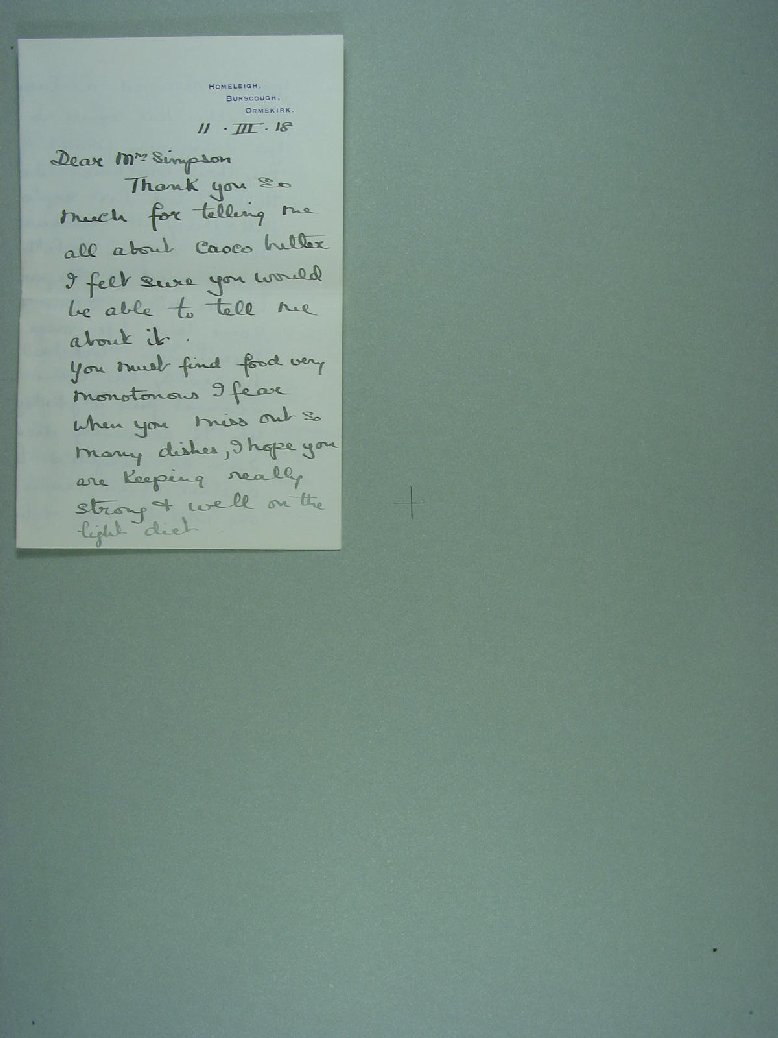 HOMELEIGH,
BURSCOUGH,
ORMSKIRK.
11 · III · 18
Dear Mrs Simpson
Thank you so
much for telling me
all about caoco butter
I felt sure you would
be able to tell me
about it.
You must find food very
monotonous I fear
when you miss out so
many dishes, I hope you
are keeping really
strong & well on the
light diet